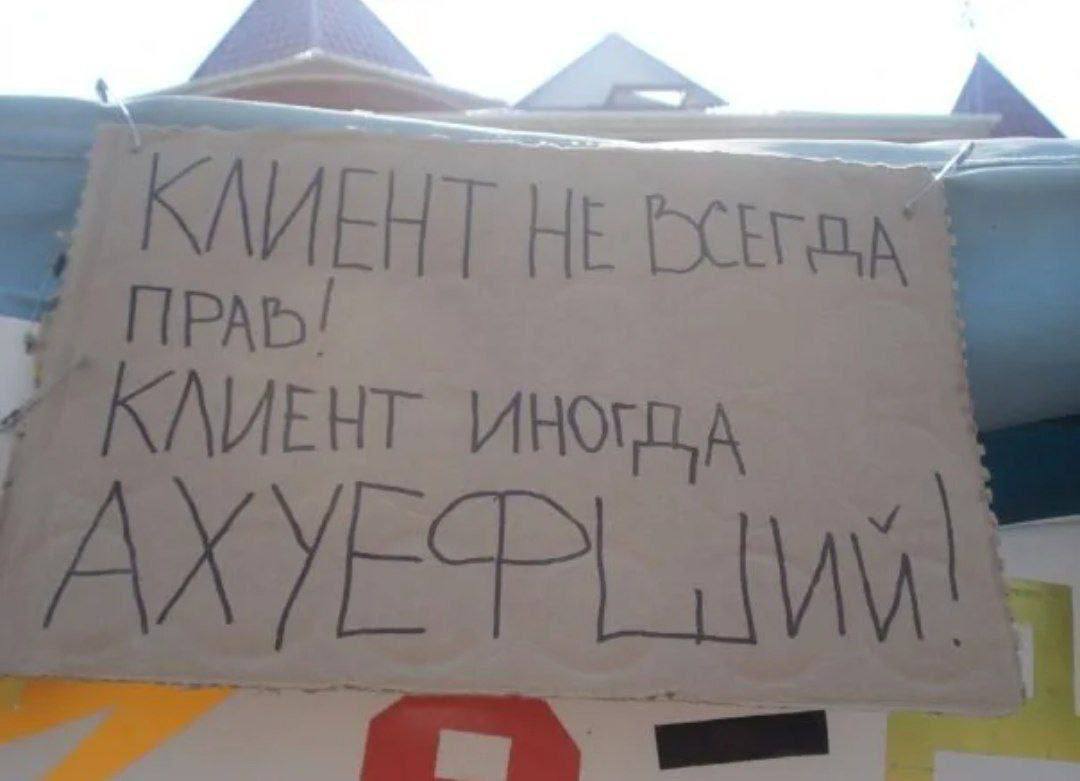 КЛИЕНТ НЕ ВСЕГДА
ПРАВ!
КЛИЕНТ ИНОГДА
АХУЕФШИЙ!